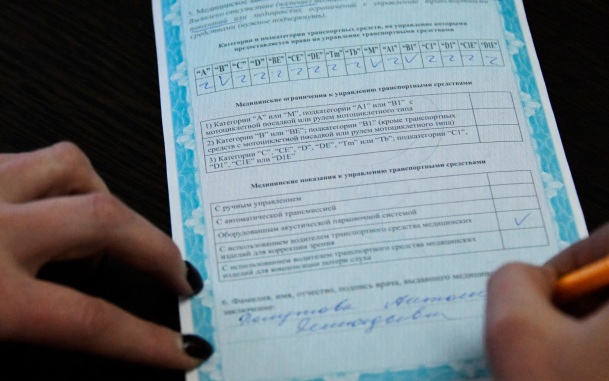 5. Медицинское
Выявлено отсутствие (наличие)
показаний или
средствами (нужное подчеркнуть).
Категории и подкатегории транспортных средств, на управление которыми
предоставляется право на управление транспортными средствами
"A" "B" "C" "D" "BE" "CE" "DE" "Tm" "Tb" "M" "A1" "B1" "C1" "D1" "C1E" "D1E"
Медицинские ограничения к управлению транспортными средствами
1) Категории "A" или "M", подкатегории "A1" или "B1" с
мотоциклетной посадкой или рулем мотоциклетного типа
2) Категории "B" или "BE"; подкатегории "B1" (кроме транспортных
средств с мотоциклетной посадкой или рулем мотоциклетного типа)
3) Категории "C", "CE", "D", "DE", "Tm" или "Tb", подкатегории "C1",
"D1", "C1E" или "D1E"
Медицинские показания к управлению транспортными средствами
С ручным управлением
С автоматической трансмиссией
Оборудованным акустической парковочной системой
С использованием водителем транспортного средства медицинских
изделий для коррекции зрения
С использованием водителем транспортного средства медицинских
изделий для компенсации потери слуха
6. Фамилия, имя, отчество, подпись врача, выдавшего
заключение: